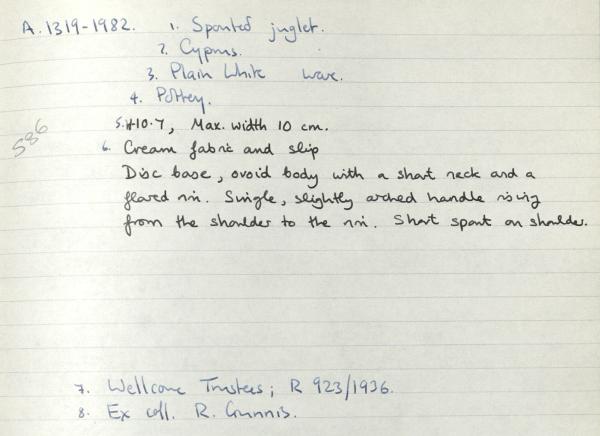 A.1319-1982. 1. Spouted juglet.
2. Cyprus.
3. Plain White ware.
4. Pottery.
5. H10.7, Max. width 10 cm.
586
6. Cream fabric and slip
Disc base, ovoid body with a short neck and a
flared rim. Single, slightly arched handle rising
from the shoulder to the rim. Short spout on shoulder.
7. Wellcome Trustees; R 923/1936.
8. Ex coll. R. Gunnis.